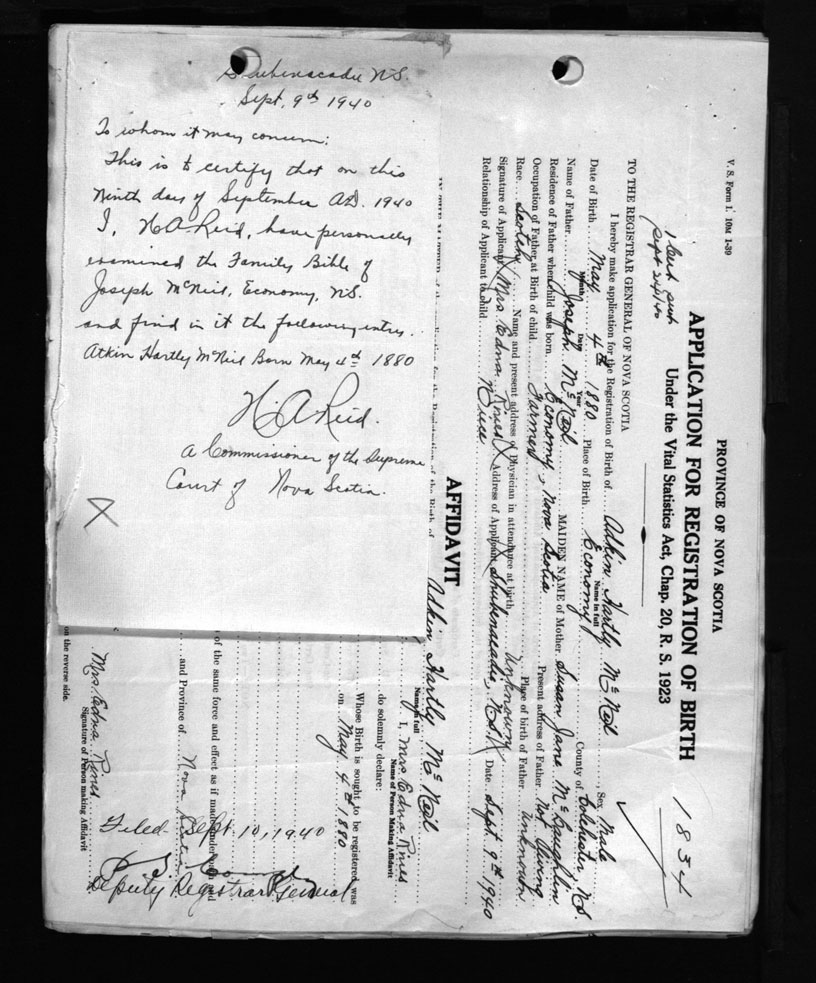 Shubenacadie N.S.
Sept. 9th 1940
To whom it may concern:
This is to certify that on this
Ninth day of September A.D. 1940
I, H A Reid, have personally
examined the Family Bible of
Joseph McNeil, Economy, N.S.
and find in it the following entry.
Atkin Hartly McNeil Born May 4th 1880
H. A Reid.
A Commissioner of the Supreme
Court of Nova Scotia.
V. S. Form 1. 10M 1-39
1 Cert sent
Sept 24/40
PROVINCE OF NOVA SCOTIA
1834
APPLICATION FOR REGISTRATION OF BIRTH
Under the Vital Statistics Act, Chap. 20, R. S. 1923
TO THE REGISTRAR GENERAL OF NOVA SCOTIA
I hereby make application for the Registration of Birth of Adkin Hartly McNeil, Sex Male
Name in full
Date of Birth May 4th 1880 Place of Birth Economy County of Colchester, N.S.
Month Day Year
Name of Father Joseph McNeil MAIDEN NAME of Mother Susan Jane McLaughlin
Residence of Father when child was born. Economy, Nova Scotia Present address of Father Not living
Occupation of Father at Birth of child. Farmer Place of birth of Father. Unknown
Race Scotch Name and present address of Physician in attendance at birth Unknown
Signature of Applicant X Mrs. Edna Rines X Address of Applicant X Shubenacadie, N.S. X Date Sept 9th 1940
Relationship of Applicant to child Niece
AFFIDAVIT
of the Registration of the Birth of Adkin Hartly McNeil
Name in full
I, Mrs Edna Rines
Name of Person Making Affidavit
do solemnly declare:
Whose Birth is sought to be registered was
on May 4th 1880
of the same force and effect as if made under oath and
and Province of Nova Scotia
Filed Sept. 10, 1940
Deputy Registrar General
Mrs. Edna Rines
Signature of Person making Affidavit
on the reverse side.